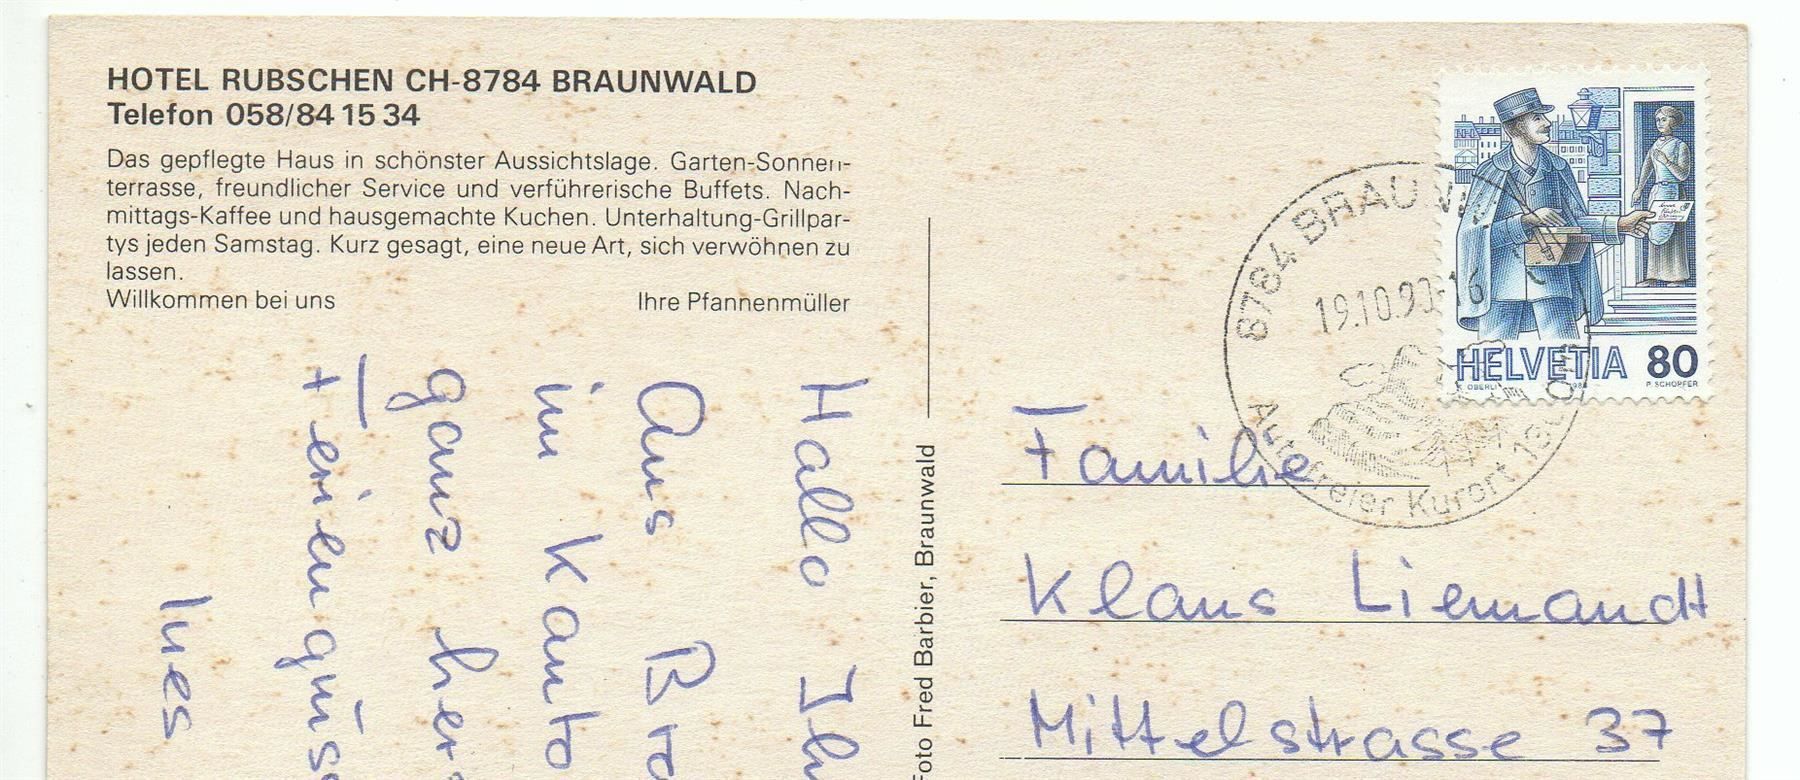 HOTEL RUBSCHEN CH-8784 BRAUNWALD
Telefon 058/84 15 34
Das gepflegte Haus in schönster Aussichtslage. Garten-Sonnen-
terrasse, freundlicher Service und verführerische Buffets. Nach-
mittags-Kaffee und hausgemachte Kuchen. Unterhaltung-Grillpar-
tys jeden Samstag. Kurz gesagt, eine neue Art, sich verwöhnen zu
lassen.
Willkommen bei uns Ihre Pfannenmüller
Hallo Ih
Aus Bra
im Kanto
ganz herz
Feriengrüs
Ines
Foto Fred Barbier, Braunwald
8784 BRAUNW
19.10.90-16
Autofreier Kurort 1300m
HELVETIA 80
K. OBERLI P. SCHOPFER
Familie
Klaus Liemandt
Mittelstrasse 37